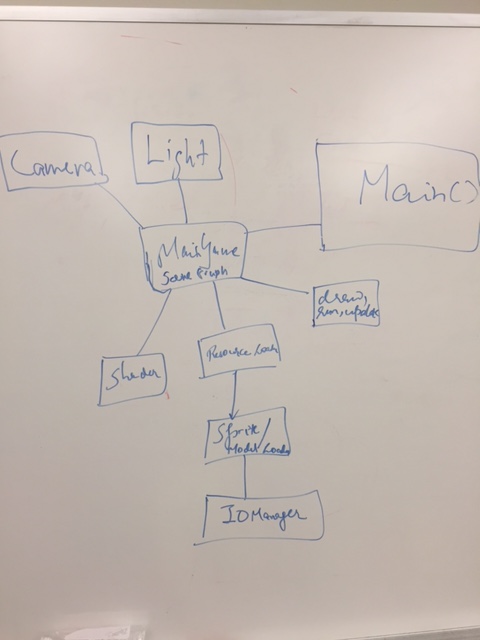 Camera
Light
Main()
MainGame
Scene Graph
draw,
run, update
Shader
Resource Loader
Sprite/
Model Loader
IOManager